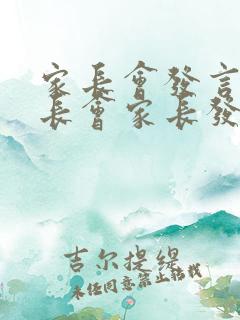 家長會發言
長會家長發
吉尔提缇
未经同意禁止转载